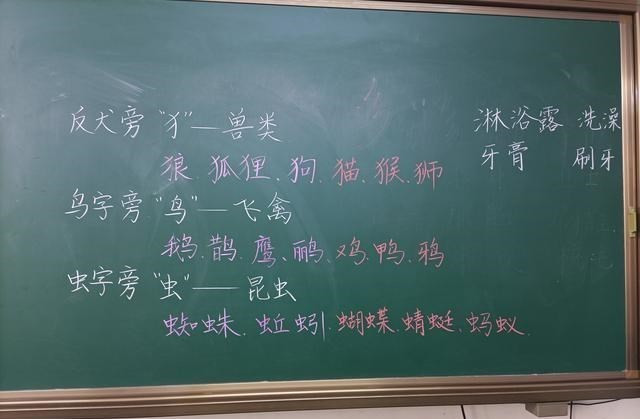 反犬旁“犭”——兽类
狼、狐狸、狗、猫、猴、狮
鸟字旁“鸟”——飞禽
鹅、鹊、鹰、鹂、鸡、鸭、鸦
虫字旁“虫”——昆虫
蜘蛛、蚯蚓、蝴蝶、蜻蜓、蚂蚁、
淋浴露 洗澡
牙膏 刷牙